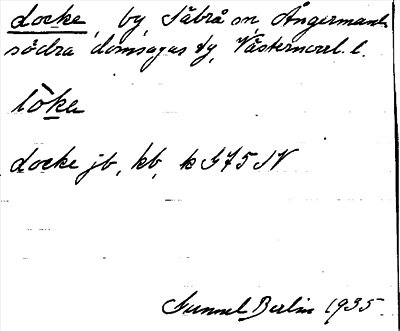 Locke, by, Säbrå sn, Ångermanl.
södra domsagas tg, Västernorrl. l.
lò̀ka
Locke jb, kb, k G75 SV
Gunnel Berlin 1935